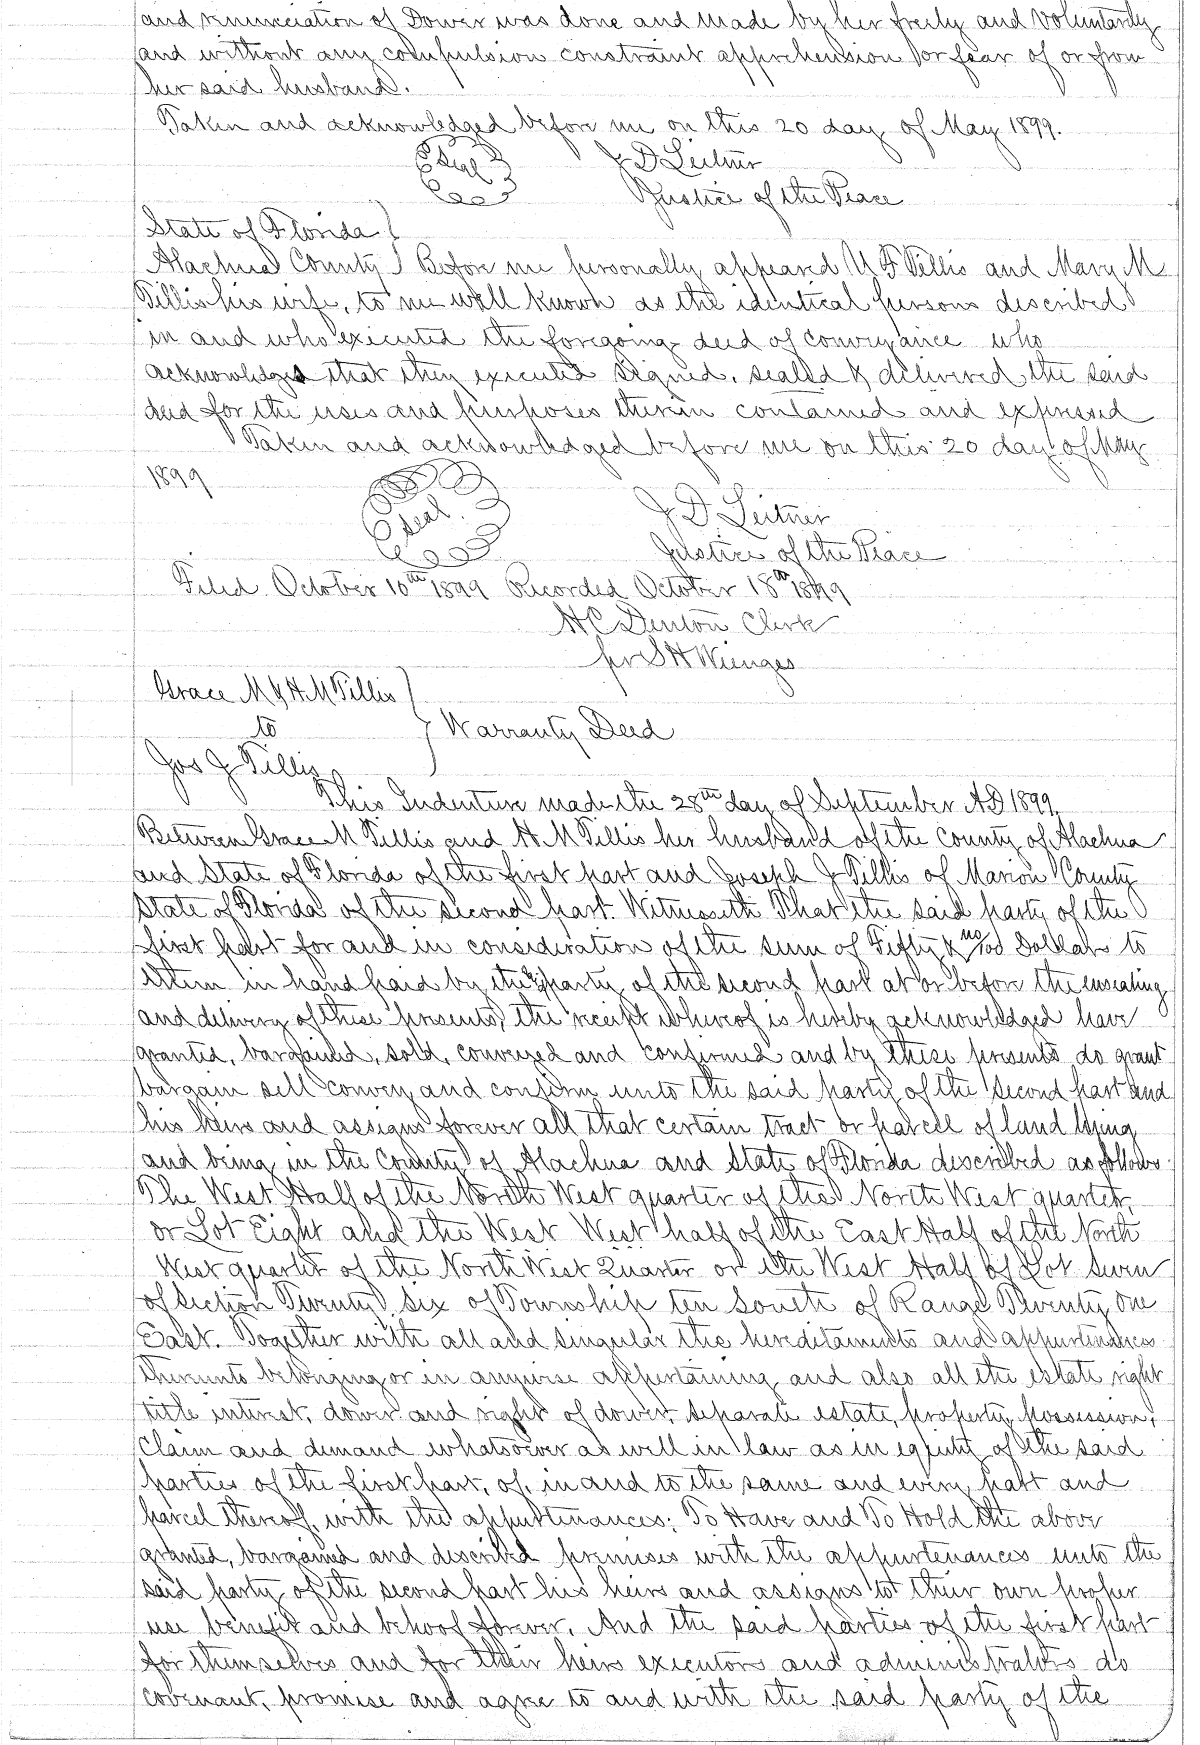 and renunciation of Dower was done and made by her freely and voluntarily
and without any compulsion constraint apprehension or fear of or from
her said husband.
Taken and acknowledged before me on this 20 day of May 1899.
Seal J D Leitner
Justice of the Peace
State of Florida
Alachua County Before me personally appeared U F Tillis and Mary M
Tillis his wife, to me well known as the identical persons described
in and who executed the foregoing deed of conveyance who
acknowledged that they executed signed, sealed & delivered the said
deed for the uses and purposes therein contained and expressed
Taken and acknowledged before me on this 20 day of May
1899
Seal J D Leitner
Justice of the Peace
Filed October 10th 1899 Recorded October 18th 1899
H C Denton Clerk
per S H Wienges
Grace M & H M Tillis
to
Warranty Deed
Jos J Tillis
This Indenture made the 28th day of September A D 1899,
Between Grace M Tillis and H M Tillis her husband of the County of Alachua
and State of Florida of the first part and Joseph J Tillis of Marion County
State of Florida of the second part. Witnesseth That the said party of the
first part for and in consideration of the sum of Fifty & no/100 Dollars to
them in hand paid by the party of the second part at or before the ensealing
and delivery of these presents, the receipt whereof is hereby acknowledged have
granted, bargained, sold, conveyed and confirmed and by these presents do grant
bargain sell convey and confirm unto the said party of the second part and
his heirs and assigns forever all that certain tract or parcell of land lying
and being in the County of Alachua and State of Florida described as follows
The West Half of the North West quarter of the North West quarter,
or Lot Eight and the West West half of the East Half of the North
West quarter of the North West Quarter or the West Half of Lot Seven
of Section Twenty six of Township ten South of Range Twenty one
East. Together with all and singular the hereditaments and appurtenances
thereunto belonging or in anywise appertaining and also all the estate right
title interest, dower and right of dower, separate estate, property, possession,
claim and demand whatsoever as well in law as in equity of the said
parties of the first part, of, in and to the same and every part and
parcel thereof, with the appurtenances: To Have and To Hold the above
granted, bargained and described premises with the appurtenances unto the
said party of the second part his heirs and assigns to their own proper
use benefit and behoof forever. And the said parties of the first part
for themselves and for their heirs executors and administrators do
covenant, promise and agree to and with the said party of the